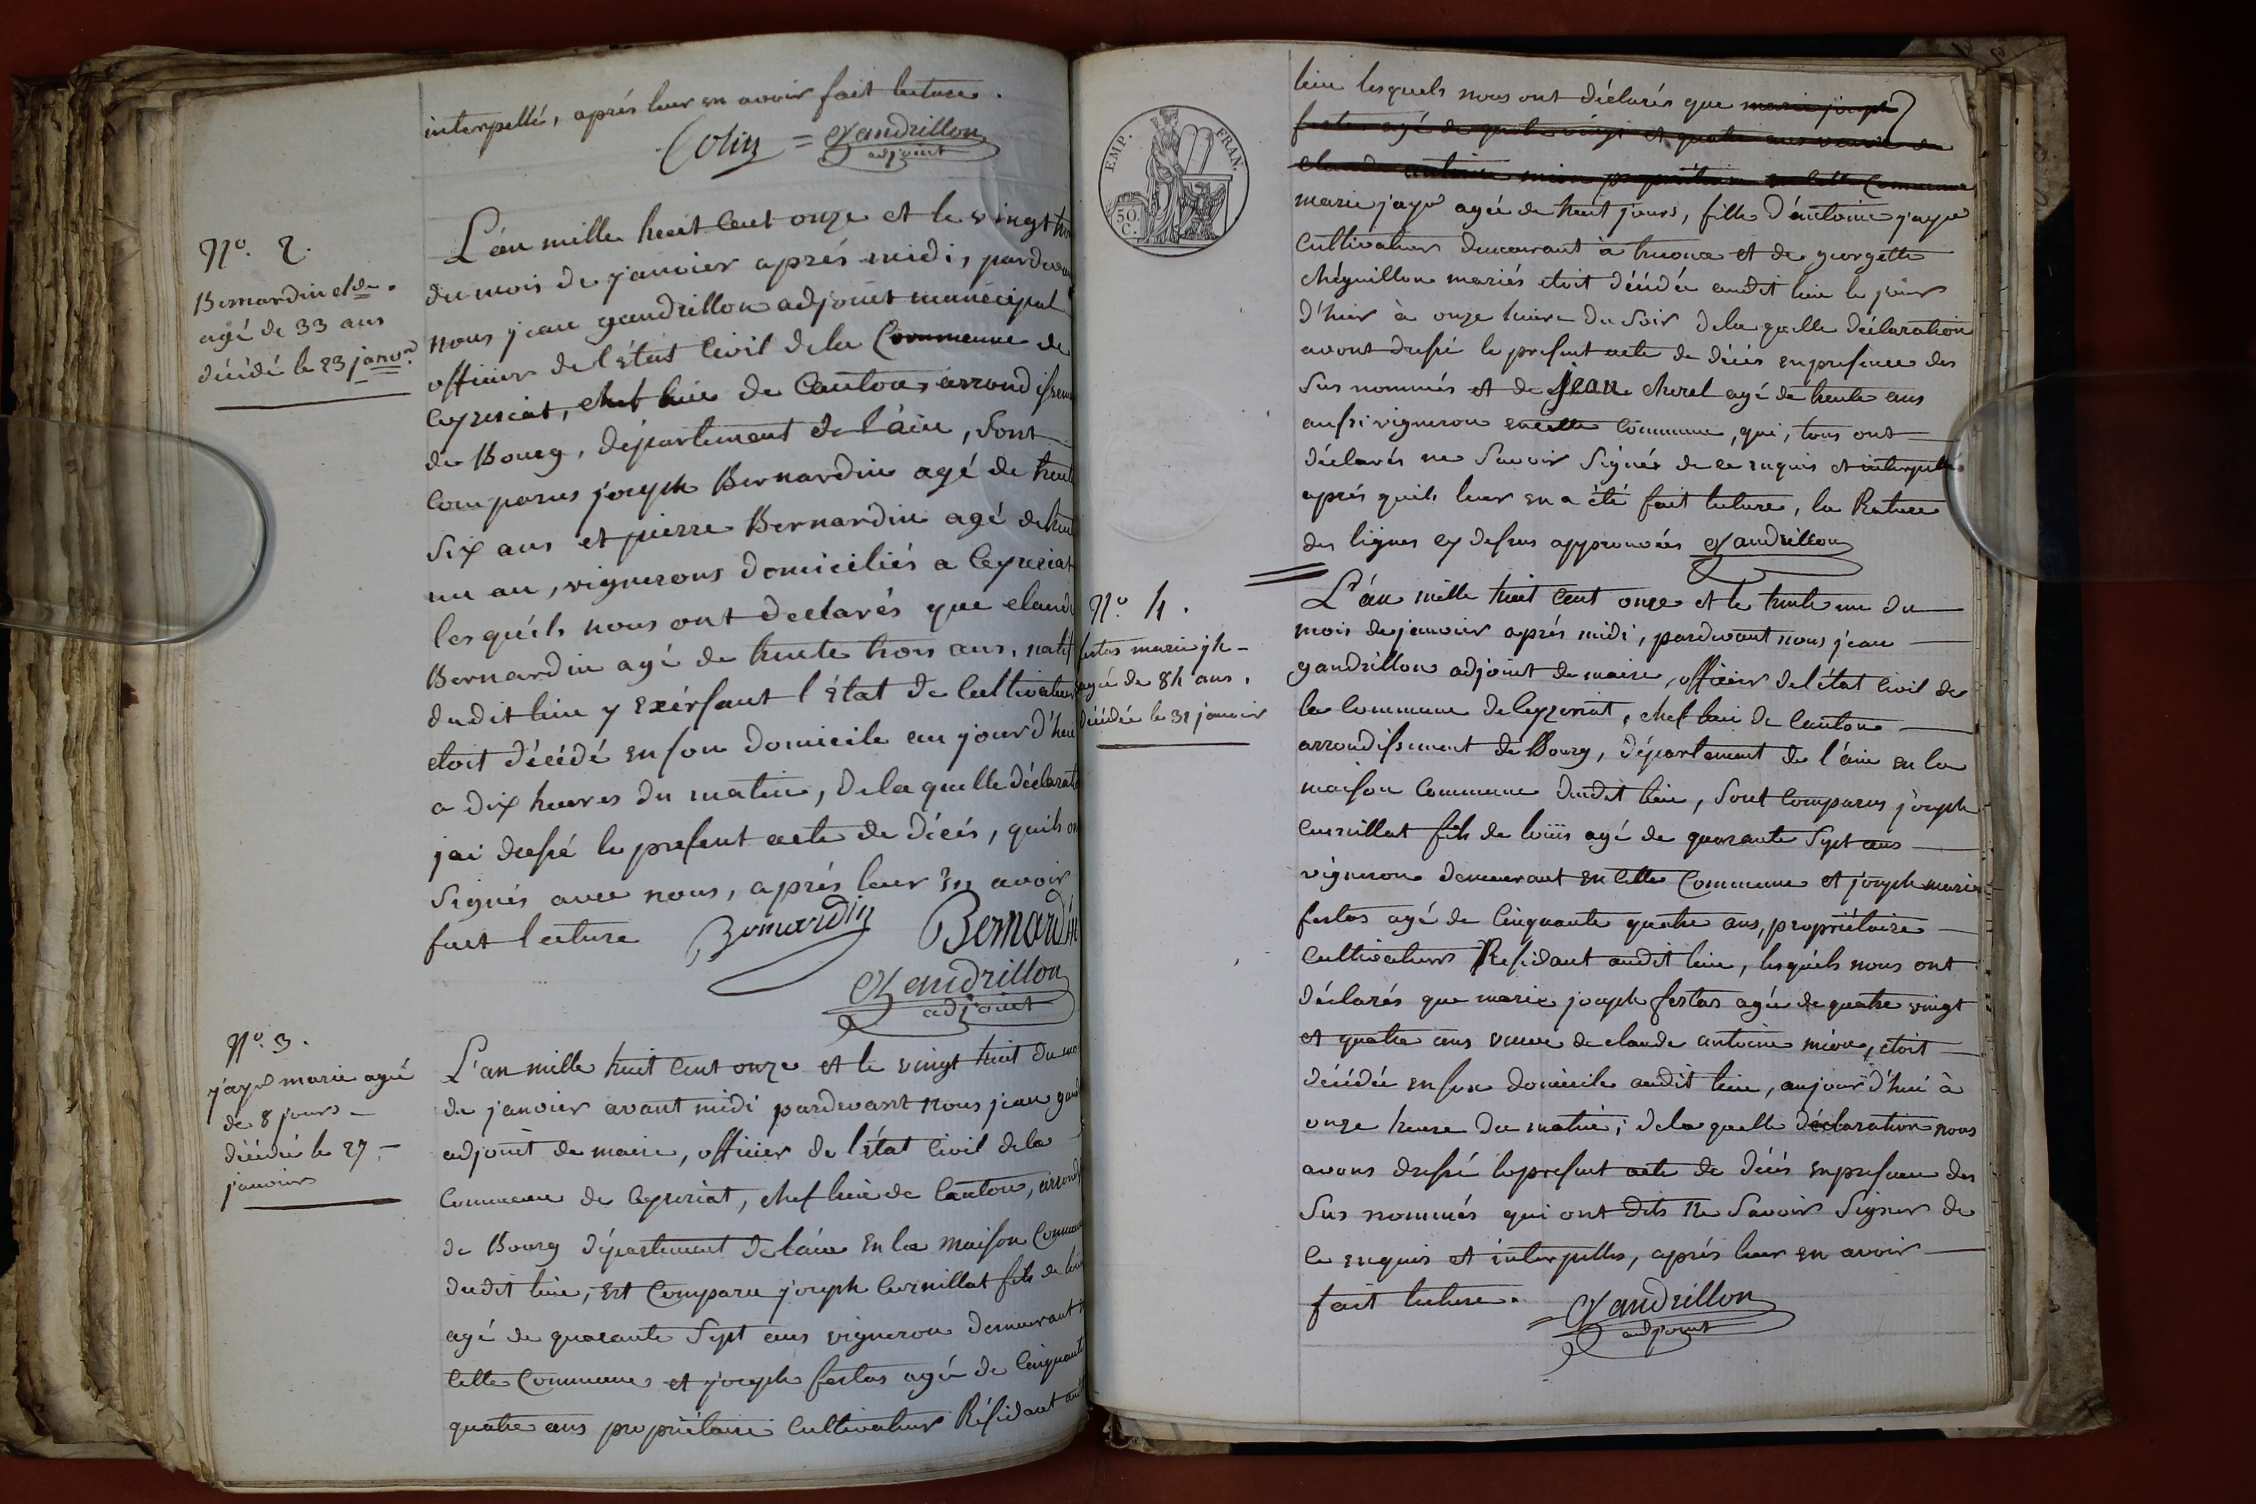 interpellé, aprés leur en avoir fait lecture.
Colin = Gandrillon
adjoint
N.º 2.
Bernardin clde.
agé de 33 ans
décédé le 23 janvr
L'an mille huit cent onze et le vingt
du mois de janvier aprés midi, pardevant
nous jean gandrillon adjoint municipal
officier de l'état Civil de la Commune de
Ceyzeriat, chef lieu de Canton, arrondissem
de Bourg, département de l'ain, Sont
Comparus joseph Bernardin agé de trente
Six ans et pierre Bernardin agé de trent
un an, vignerons domiciliés a Ceyzeriat
lesquéls nous ont declarés que claude
Bernardin agé de trente trois ans, natif
dudit lieu y exérsant l'état de Cultivateur
etoit décédé en son domicile au jourd'hui
a dix heures du matin, de la quelle déclarat
jai dressé le present acte de décés, quils on
Signés avec nous, aprés leur en avoir
fait lecture Bernardin Bernardin
Gandrillon
adjoint
N.º 3.
jayr marie agée
de 8 jours
décédée le 27
janvier
L'an mille huit cent onze et le vingt huit du mo
de janvier avant midi pardevant nous jean gan
adjoint de maire, officier de l'état Civil de la
Commune de Ceyzeriat, chef lieu de Canton, arrond
de Bourg département de l'ain en la maison Commu
dudit lieu, est Comparu joseph Curnillat fils de loui
agé de quarante Sept ans vigneron demeurant
cette Commune et joseph festas agé de Cinquante
quatre ans propriétaire Cultivateur Résidant aud
EMP. FRAN.
50. C.
lieu lesquels nous ont déclarés que marie joseph
festas agé de quatre vingt et quatre ans veuve de
claude antoine mion propriétaire en cette Commune
marie jayr agée de huit jours, fille d'antoine jayr
Cultivateur demeurant à et de georgette
chéguillon mariés etoit décédée audit lieu le jour
d'hier à onze heure du Soir de la quelle déclaration
avont dressé le present acte de décés en presence des
Sus nommés et de jean cherel agé de trente ans
aussi vigneron en cette Commune, qui, tous ont
déclarés ne Savoir Signér de ce enquis et interpellés
aprés quils leur en a été fait lecture, la Rature
des lignes cy dessus approuvées Gandrillon
N.º 4.
festas marie jh
agée de 84 ans.
décédée le 31 janvier
L'an mille huit cent onze et le trente un du
mois de janvier aprés midi, pardevant nous jean
gandrillon adjoint de maire, officier de l'état Civil de
la Commune de Ceyzeriat, chef lieu de Canton
arrondissement de Bourg, département de l'ain en la
maison Commune dudit lieu, Sont Comparus joseph
Curnillat fils de loüis agé de quarante Sept ans
vigneron demeurant en cette Commune et joseph marie
festas agé de Cinquante quatre ans, propriétaire
Cultivateur Residant audit lieu, lesquéls nous ont
déclarés que marie joseph festas agée de quatre vingt
et quatre ans veuve de claude antoine mion, etoit
décédée en son domicile audit lieu, aujourd'hui à
onze heure du matin; de la quelle déclaration nous
avons dressé le present acte de décés en presence des
Sus nommés qui ont dits ne Savoir Signer de
ce enquis et interpellés, aprés leur en avoir
fait lecture. = Gandrillon
adjoint